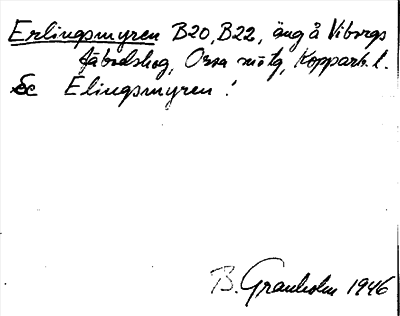 Erlingsmyren B20, B22, äng å Viborgs
fäbodskog, Orsa sn o tg, Kopparb. l.
Se Elingsmyren!
B. Granholm 1946